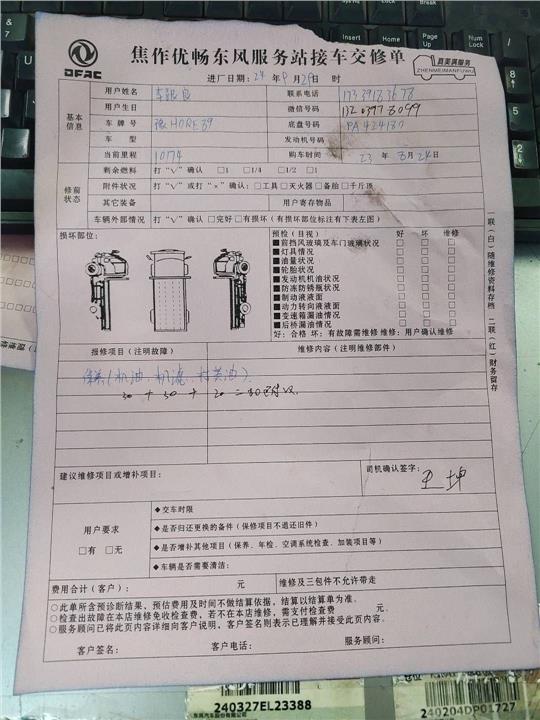 DFAC
焦作优畅东风服务站接车交修单
真美满服务
ZHENMEIMANFUWU
进厂日期：24 年 9 月 29日 时
基本信息
用户姓名
联系电话
用户生日
微信号码 13203978099
车牌号
底盘号码 PA424180
车 型
发动机号码
当前里程 10174
购车时间 23 年 8 月 24 日
修前状态
剩余燃料 打“√”确认 □1 □1/4 □1/2 □1
附件状况 打“√”或打“×”确认：□工具□灭火器□备胎□千斤顶
其它装备 用户寄存物品
车辆外部情况 打“√”确认 □完好□有损坏（有损坏部位标注有下表左图）
损坏部位：
预检（目视） 好 坏 维修
■前挡风玻璃及车门玻璃状况 □ □ □
■灯具情况 □ □ □
■油量状况 □ □ □
■轮胎状况 □ □ □
■发动机机油状况 □ □ □
■防冻防锈瓶状况 □ □ □
■制动液液面 □ □ □
■动力转向液液面 □ □ □
■变速箱漏油情况 □ □ □
■后桥漏油情况 □ □ □
好：合格 坏：有故障需维修 维修：用户确认维修
一联（白）随维修资料存档 二联（红）财务留存
报修项目（注明故障） 维修内容（注明维修部件）
保养（机油、机滤、材
建议维修项目或增补项目：
司机确认签字：
用户要求
□有 □无
◆交车时限
◆是否归还更换的备件（保修项目不退还旧件）
◆是否增补其他项目（保养、年检、空调系统检查、加装项目等）
◆车辆是否需要清洁：
费用合计（客户）： 元 维修及三包件不允许带走
○此单所含预诊断结果，预估费用及时间不做结算依据，结算以结算单为准。
○检查出故障在本店维修免收检查费，若不在本店维修，需支付检查费 元。
○服务顾问已将此页内容详细向客户说明，客户签名则表示已理解并接受此页内容。
客户签名： 客户电话： 服务顾问：
240327EL23388
240204DP01727